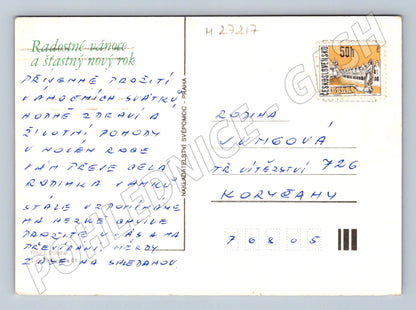 M 27217
Radostné vánoce
a šťastný nový rok
PŘÍJEMNÉ PROŽITÍ
VÁNOČNÍCH SVÁTKŮ
HODNĚ ZDRAVÍ A
ŽIVOTNÍ POHODY
V NOVÉM ROCE
VÁM PŘEJE CELÁ
RODINKA
STÁLE VZPOMÍNÁME
NA HEZKÉ CHVÍLE
PROŽITÉ U VÁS A NA
NA SHLEDANOU.
NAKLADATELSTVÍ SVÉPOMOC - PRAHA
ČESKOSLOVENSKO
50h
RODINA
TŘ. VÍTĚZSTVÍ 726
KORYČANY
7 6 8 0 5
POHLEDNICE - CASH